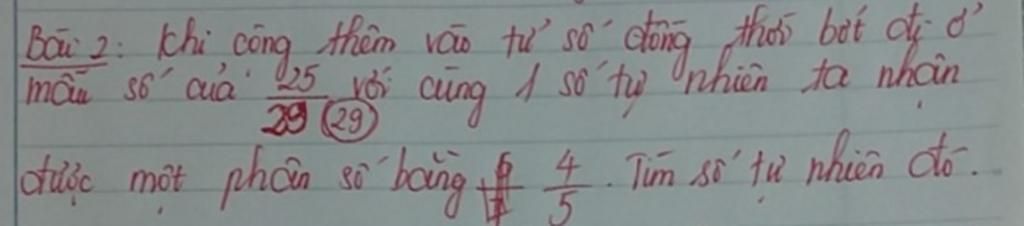 Bài 2: Khi cộng thêm vào tử số đồng thời bớt đi ở
mẫu số của 25/29 (29) với cùng 1 số tự nhiên ta nhận
được một phân số bằng 4/5. Tìm số tự nhiên đó.